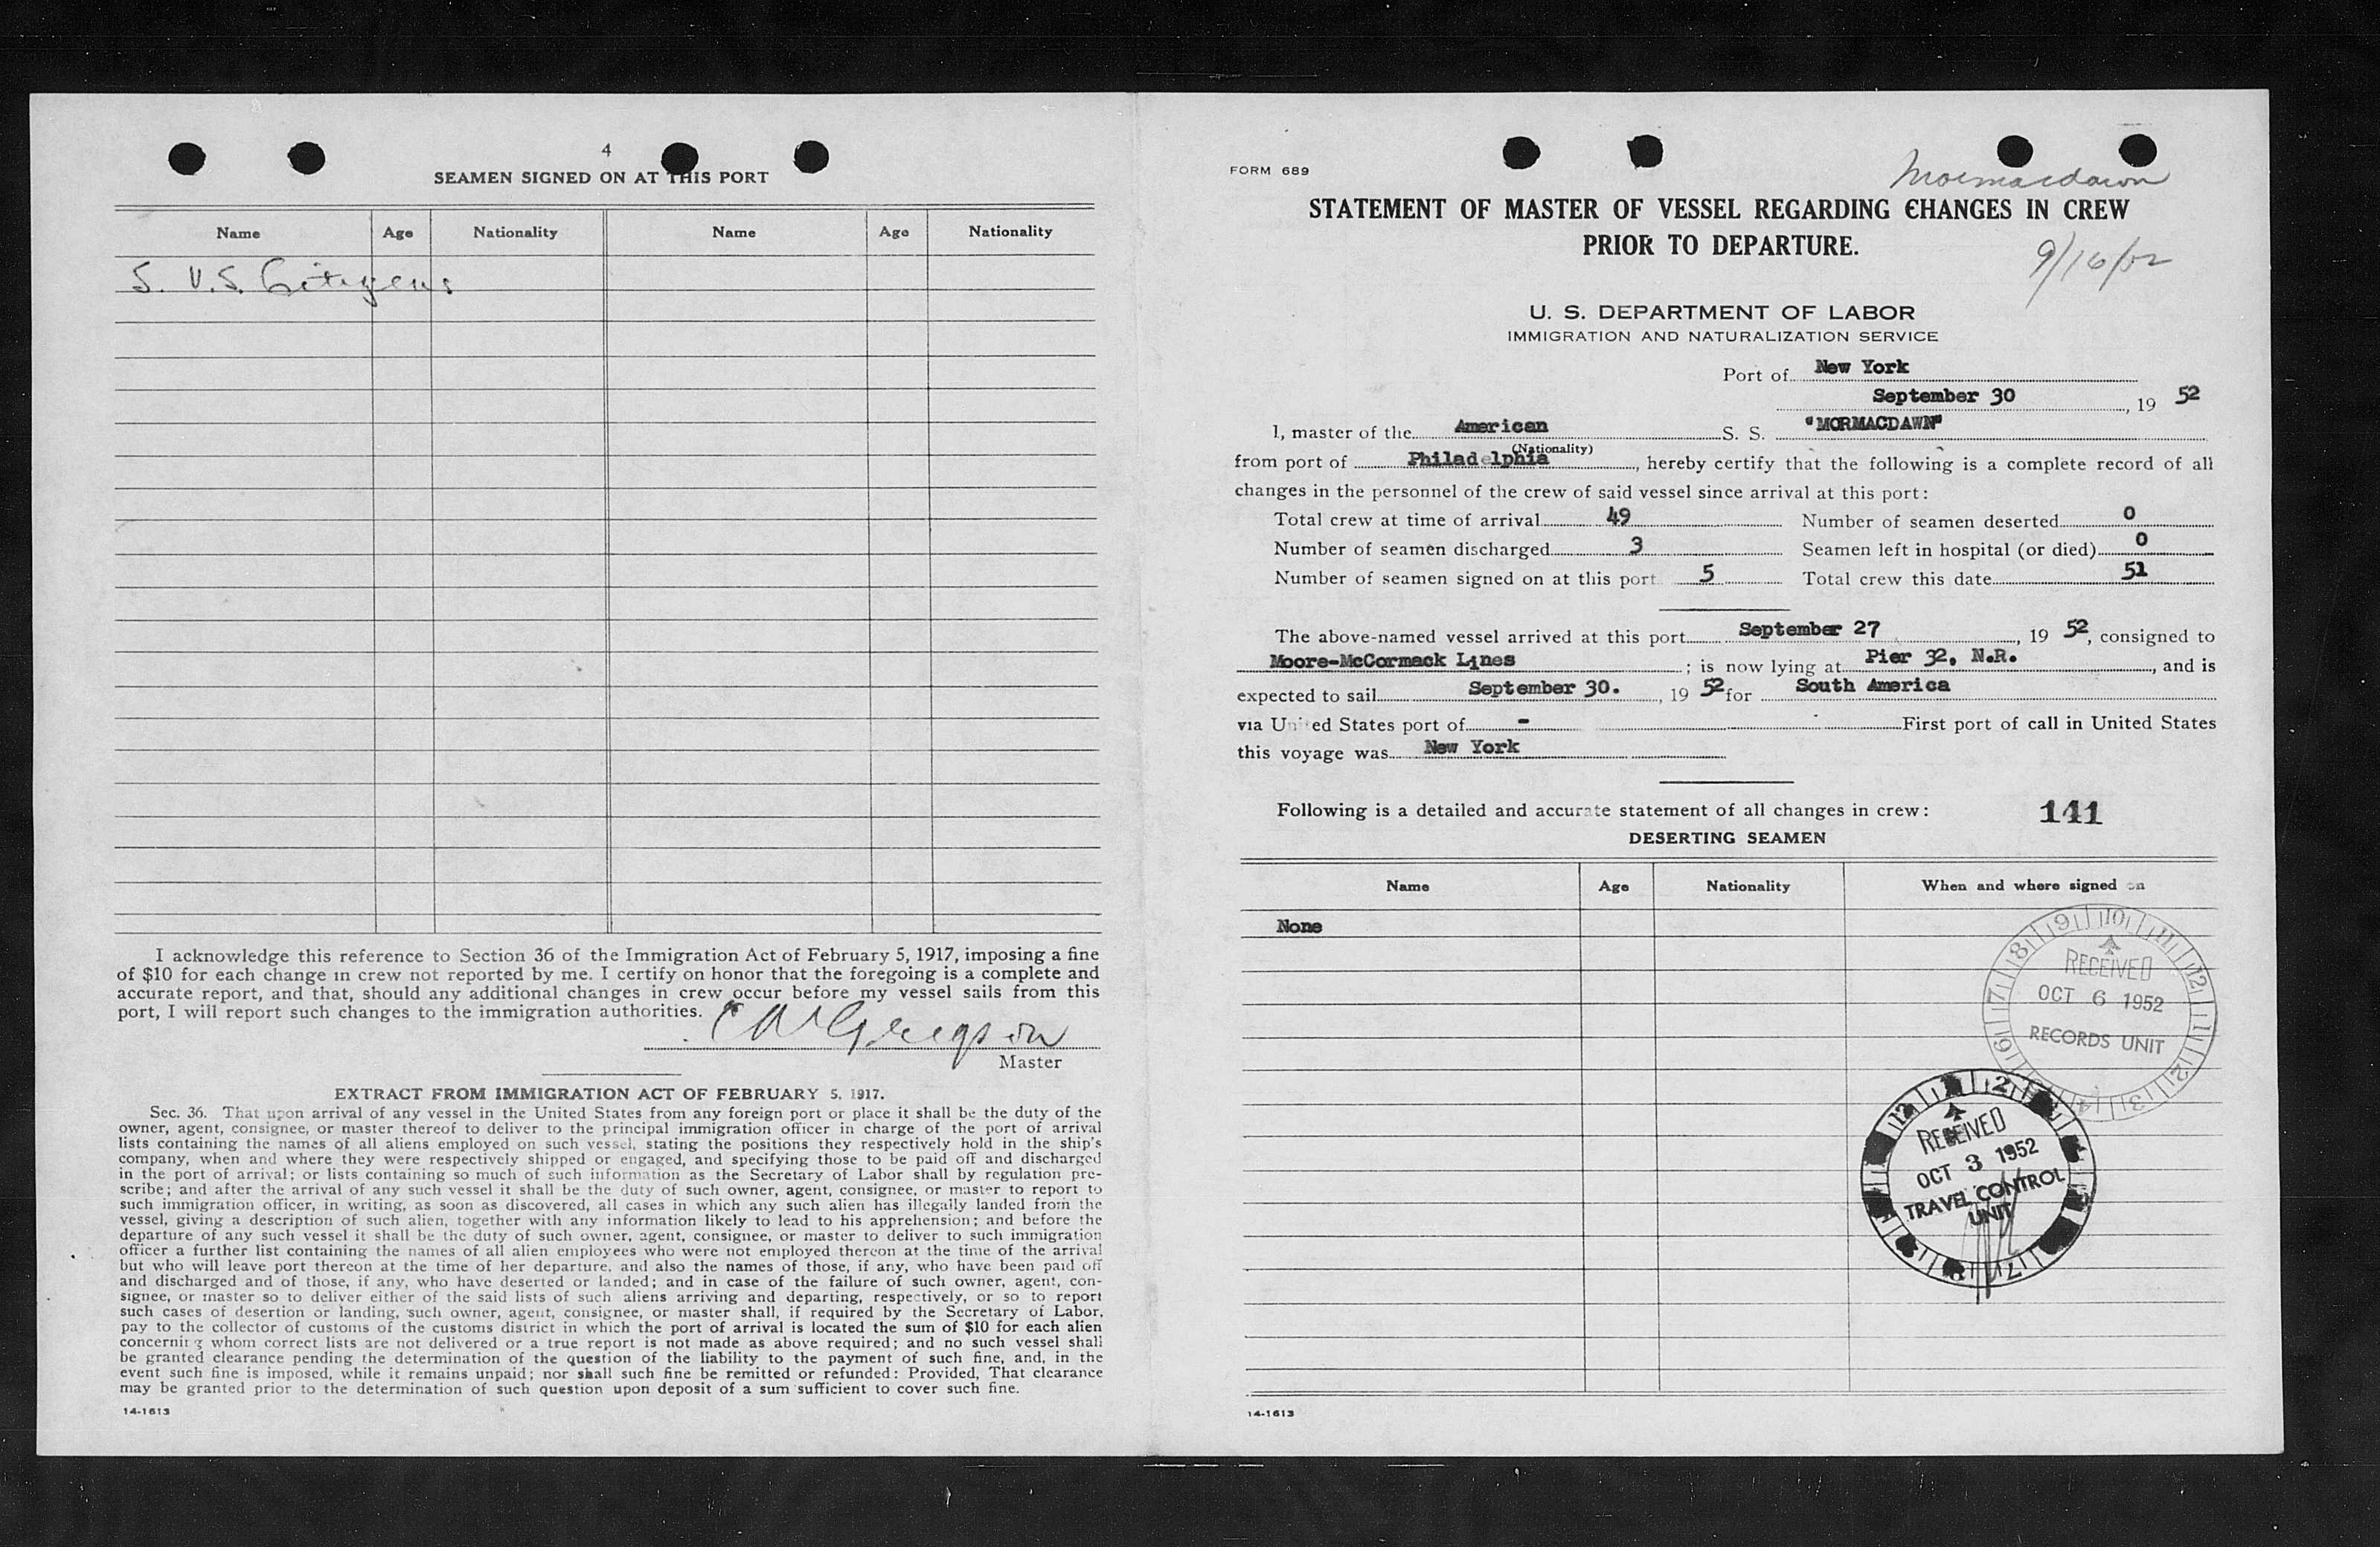 4
SEAMEN SIGNED ON AT THIS PORT
Name Age Nationality Name Age Nationality
5. U.S. Citizens
I acknowledge this reference to Section 36 of the Immigration Act of February 5, 1917, imposing a fine
of $10 for each change in crew not reported by me. I certify on honor that the foregoing is a complete and
accurate report, and that, should any additional changes in crew occur before my vessel sails from this
port, I will report such changes to the immigration authorities.
Master
EXTRACT FROM IMMIGRATION ACT OF FEBRUARY 5, 1917.
Sec. 36. That upon arrival of any vessel in the United States from any foreign port or place it shall be the duty of the
owner, agent, consignee, or master thereof to deliver to the principal immigration officer in charge of the port of arrival
lists containing the names of all aliens employed on such vessel, stating the positions they respectively hold in the ship's
company, when and where they were respectively shipped or engaged, and specifying those to be paid off and discharged
in the port of arrival; or lists containing so much of such information as the Secretary of Labor shall by regulation pre-
scribe; and after the arrival of any such vessel it shall be the duty of such owner, agent, consignee, or master to report to
such immigration officer, in writing, as soon as discovered, all cases in which any such alien has illegally landed from the
vessel, giving a description of such alien, together with any information likely to lead to his apprehension; and before the
departure of any such vessel it shall be the duty of such owner, agent, consignee, or master to deliver to such immigration
officer a further list containing the names of all alien employees who were not employed thereon at the time of the arrival
but who will leave port thereon at the time of her departure, and also the names of those, if any, who have been paid off
and discharged and of those, if any, who have deserted or landed; and in case of the failure of such owner, agent, con-
signee, or master so to deliver either of the said lists of such aliens arriving and departing, respectively, or so to report
such cases of desertion or landing, such owner, agent, consignee, or master shall, if required by the Secretary of Labor,
pay to the collector of customs of the customs district in which the port of arrival is located the sum of $10 for each alien
concerning whom correct lists are not delivered or a true report is not made as above required; and no such vessel shall
be granted clearance pending the determination of the question of the liability to the payment of such fine, and, in the
event such fine is imposed, while it remains unpaid; nor shall such fine be remitted or refunded: Provided, That clearance
may be granted prior to the determination of such question upon deposit of a sum sufficient to cover such fine.
14-1613
FORM 689
Mormacdawn
STATEMENT OF MASTER OF VESSEL REGARDING CHANGES IN CREW
PRIOR TO DEPARTURE.
9/16/52
U. S. DEPARTMENT OF LABOR
IMMIGRATION AND NATURALIZATION SERVICE
Port of New York
September 30, 19 52
I, master of the American S. S. "MORMACDAWN"
(Nationality)
from port of Philadelphia, hereby certify that the following is a complete record of all
changes in the personnel of the crew of said vessel since arrival at this port:
Total crew at time of arrival 49 Number of seamen deserted 0
Number of seamen discharged 3 Seamen left in hospital (or died) 0
Number of seamen signed on at this port 5 Total crew this date 51
The above-named vessel arrived at this port September 27, 19 52, consigned to
Moore-McCormack Lines; is now lying at Pier 32, N.R., and is
expected to sail September 30., 19 52 for South America
via United States port of - First port of call in United States
this voyage was New York
Following is a detailed and accurate statement of all changes in crew: 141
DESERTING SEAMEN
Name Age Nationality When and where signed on
None
RECEIVED
OCT 6 1952
RECORDS UNIT
RECEIVED
OCT 3 1952
TRAVEL CONTROL
UNIT
14-1613